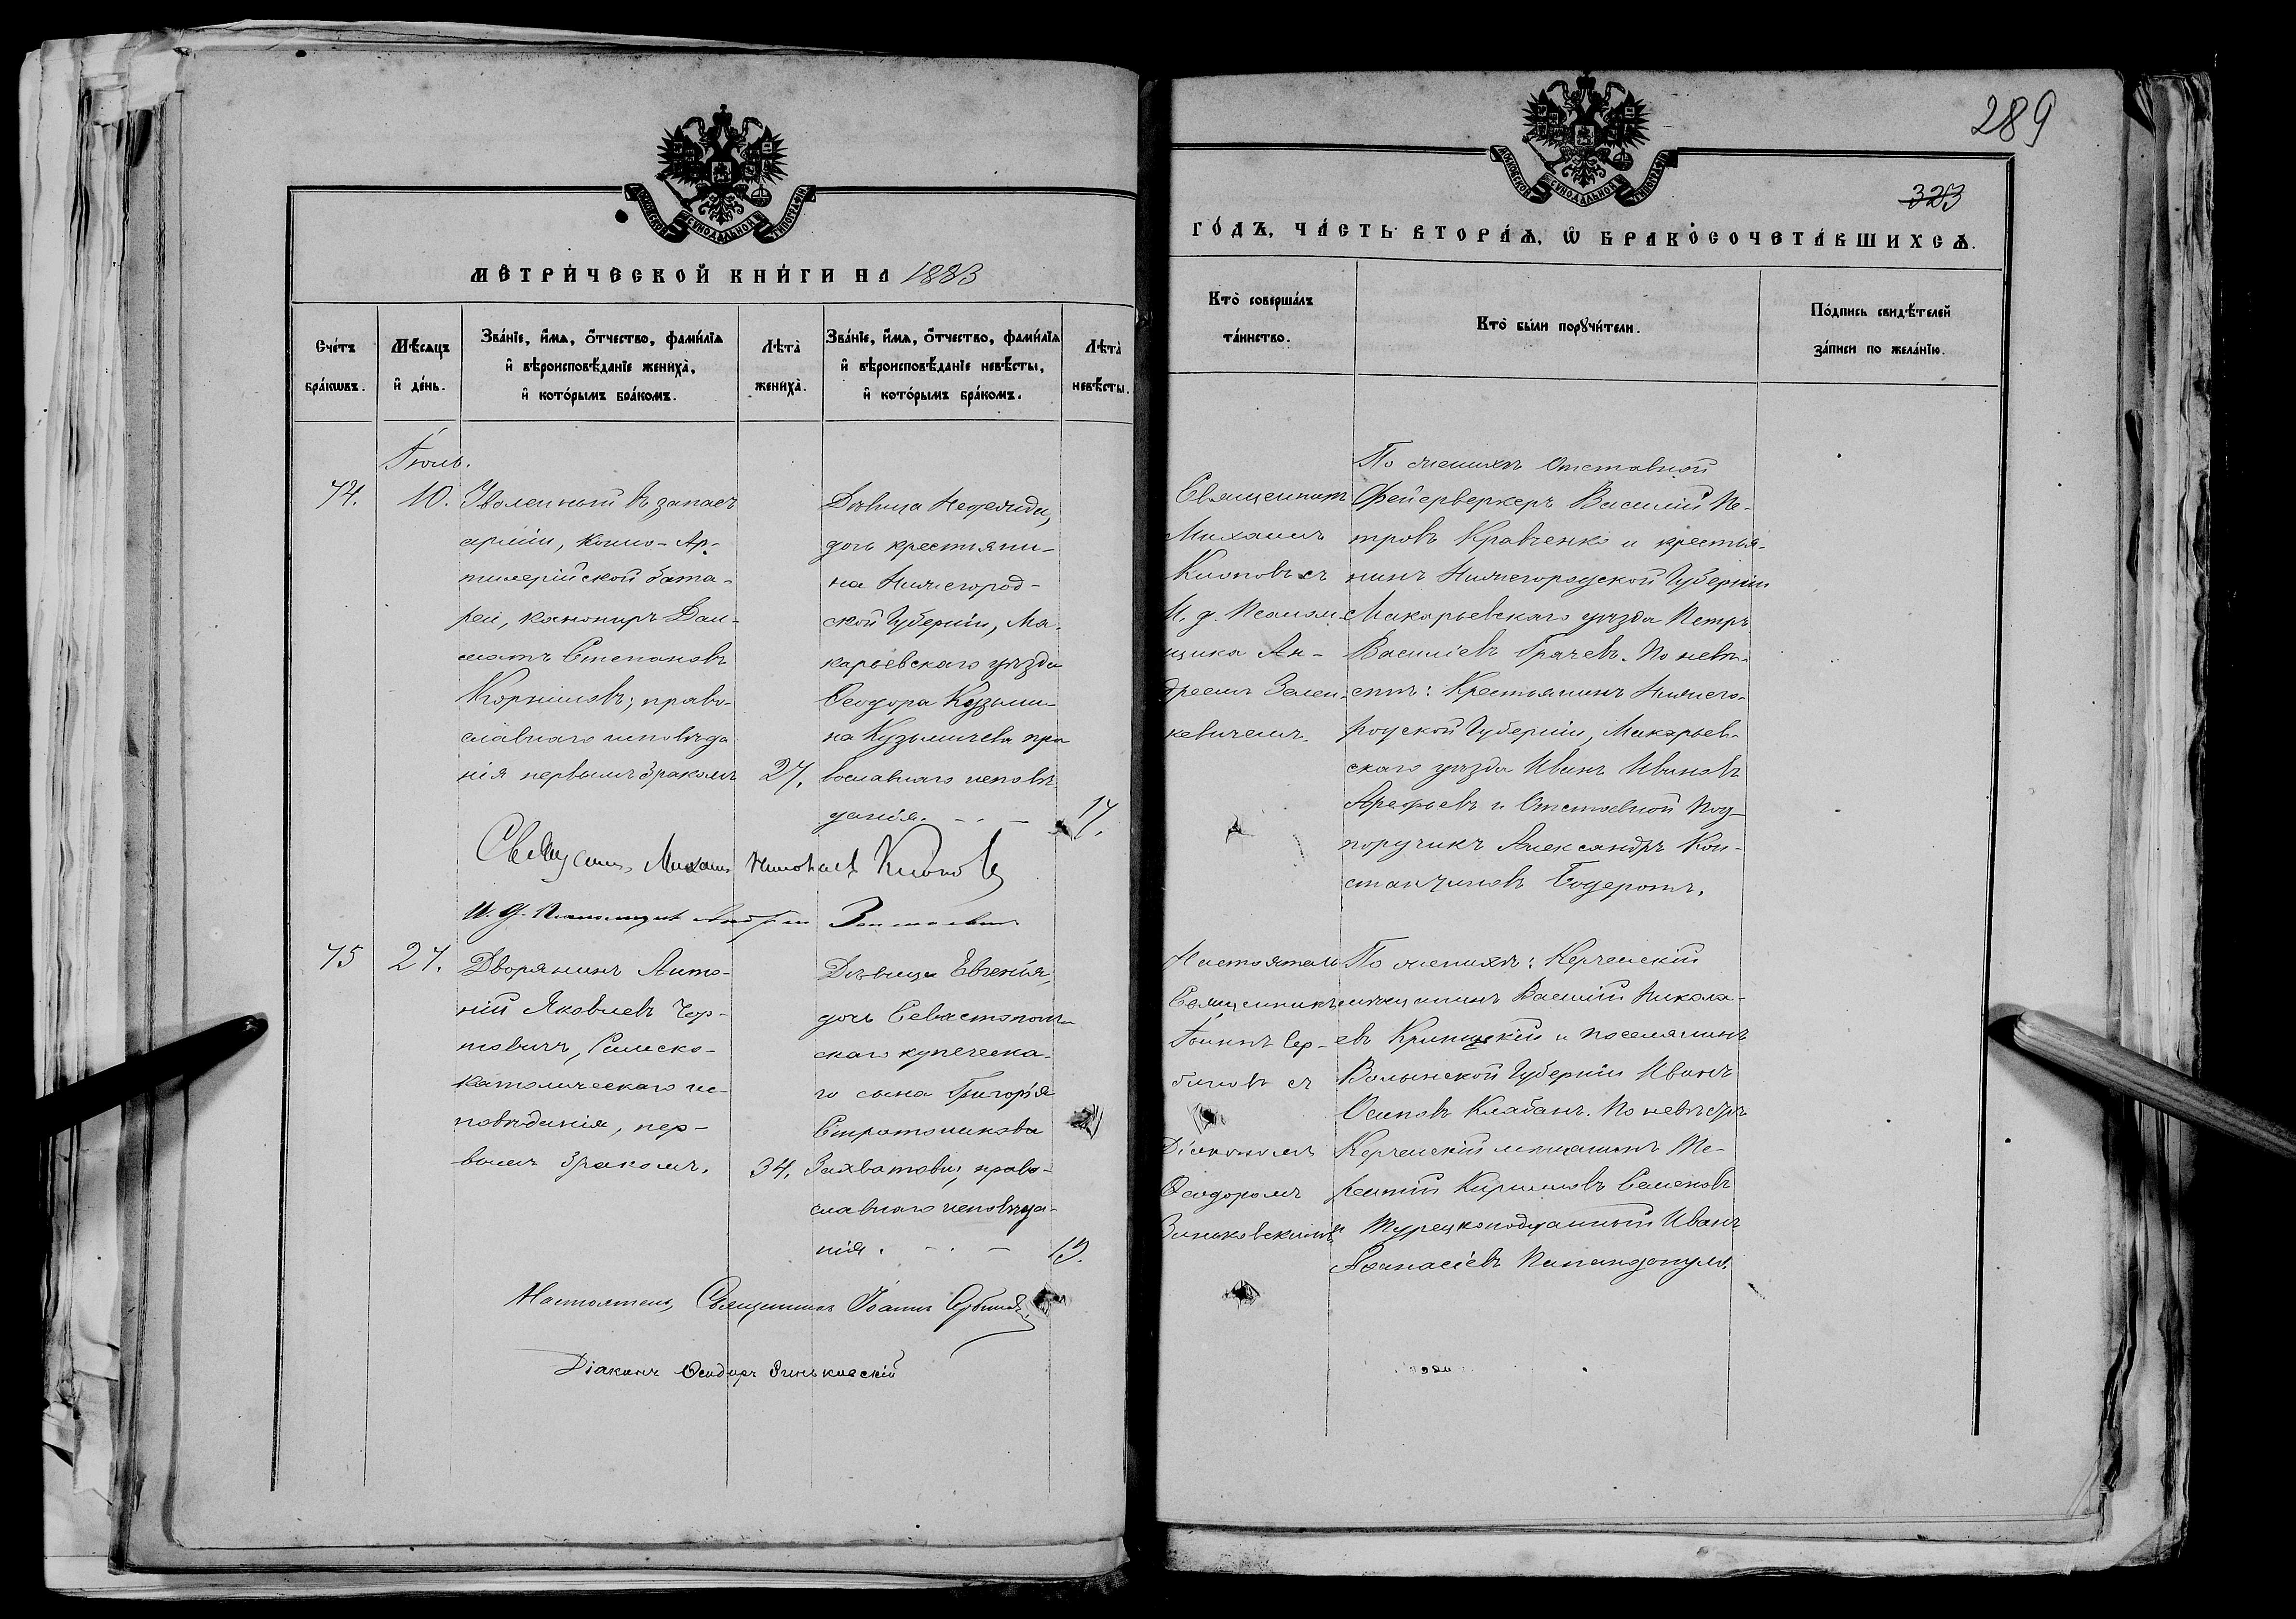 МОСКОВСКОЙ СѴНОДАЛЬНОЙ ТИПОГРАФІИ
МЕТРИ́ЧЕСКОЙ КНИ́ГИ НА 1883
Сче́тъ бра́кѡвъ.
Мѣ́сяцъ и҆ де́нь.
Зва́нїе, и҆́мѧ, ѻ҆́тчество, фами́лїѧ
и҆ вѣроисповѣ́данїе жениха̀,
и҆ кото́рымъ бра́комъ.
Лѣта̀ жениха̀.
Зва́нїе, и҆́мѧ, ѻ҆́тчество, фами́лїѧ
и҆ вѣроисповѣ́данїе невѣ́сты,
и҆ кото́рымъ бра́комъ.
Лѣта̀ невѣ́сты.
Іюль.
74.
10.
Уволенный въ запасъ
арміи, конно-Ар-
тилерійской бата-
реи, канониръ Дал-
матъ Степановъ
Корниловъ; право-
славнаго исповѣда
нія первымъ бракомъ
27.
Дѣвица
дочь крестьяни-
на Нижегород-
ской Губерніи, Ма-
карьевскаго уѣзда
Ѳеодора Кузьми-
на Кузьмичева пра
вославнаго исповѣ-
данія. - . -
17.
Священникъ Михаилъ Климовъ
И. д. Псаломщика Андрей
75
27.
Дворянинъ Анто-
ній Яковлевъ Чер-
товичъ, Римско-
католическаго ис-
повѣданія, пер-
вымъ бракомъ.
34.
Дѣвица Евгенія,
дочь Севастополь-
скаго купеческа-
го сына Григорія
Стратоникова
Захватова, право-
славнаго исповѣда-
нія. - . . -
19.
Настоятель, Священникъ Іоаннъ Сербиновъ
Діаконъ Ѳеодоръ Зиньковскій
МОСКОВСКОЙ СѴНОДАЛЬНОЙ ТИПОГРАФІИ
289
323
ГО́ДЪ, ЧА́СТЬ ВТОРА́Ѧ, Ѡ҆ БРАКОСОЧЕТА́ВШИХСѦ.
Кто̀ соверша́лъ
та́инство.
Кто̀ бы́ли порꙋчи́тели.
По́дпись свидѣ́телей
за́писи по жела́нїю.
Священникъ
Михаилъ
съ
И. д. Псалом-
щика Ан-
дреемъ Зелен-
кевичемъ.
По женихѣ Отставной
Фейерверкеръ Василій Пе-
тровъ Кравченко и крестья-
нинъ Нижегородской Губерніи
Макарьевскаго уѣзда Петръ
Василіевъ Грачевъ. По невѣ-
стѣ: Крестьянинъ Нижего-
родской Губерніи, Макарьев-
скаго уѣзда Иванъ Ивановъ
Арефьевъ и Отставной Под-
поручикъ Александръ Кон-
стантиновъ
Настоятель
Священникъ
Іоаннъ Сер-
биновъ съ
Діакономъ
Ѳеодоромъ
Зиньковскимъ
По женихѣ: Керченскій
мѣщанинъ Василій Никола-
евъ Криницкій и поселянинъ
Волынской Губерніи Иванъ
Осиповъ Клабанъ. По невѣстѣ
Керченскій мѣщанинъ Те-
рентій Кириловъ Семеновъ
и Турецкоподданный Иванъ
Аѳанасіевъ Папандопуло.